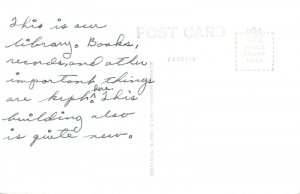 This is our
library. Books,
records, and other
important things
are kept here. This
building also
is quite new.
POST CARD
ADDRESS
PLACE
STAMP
HERE